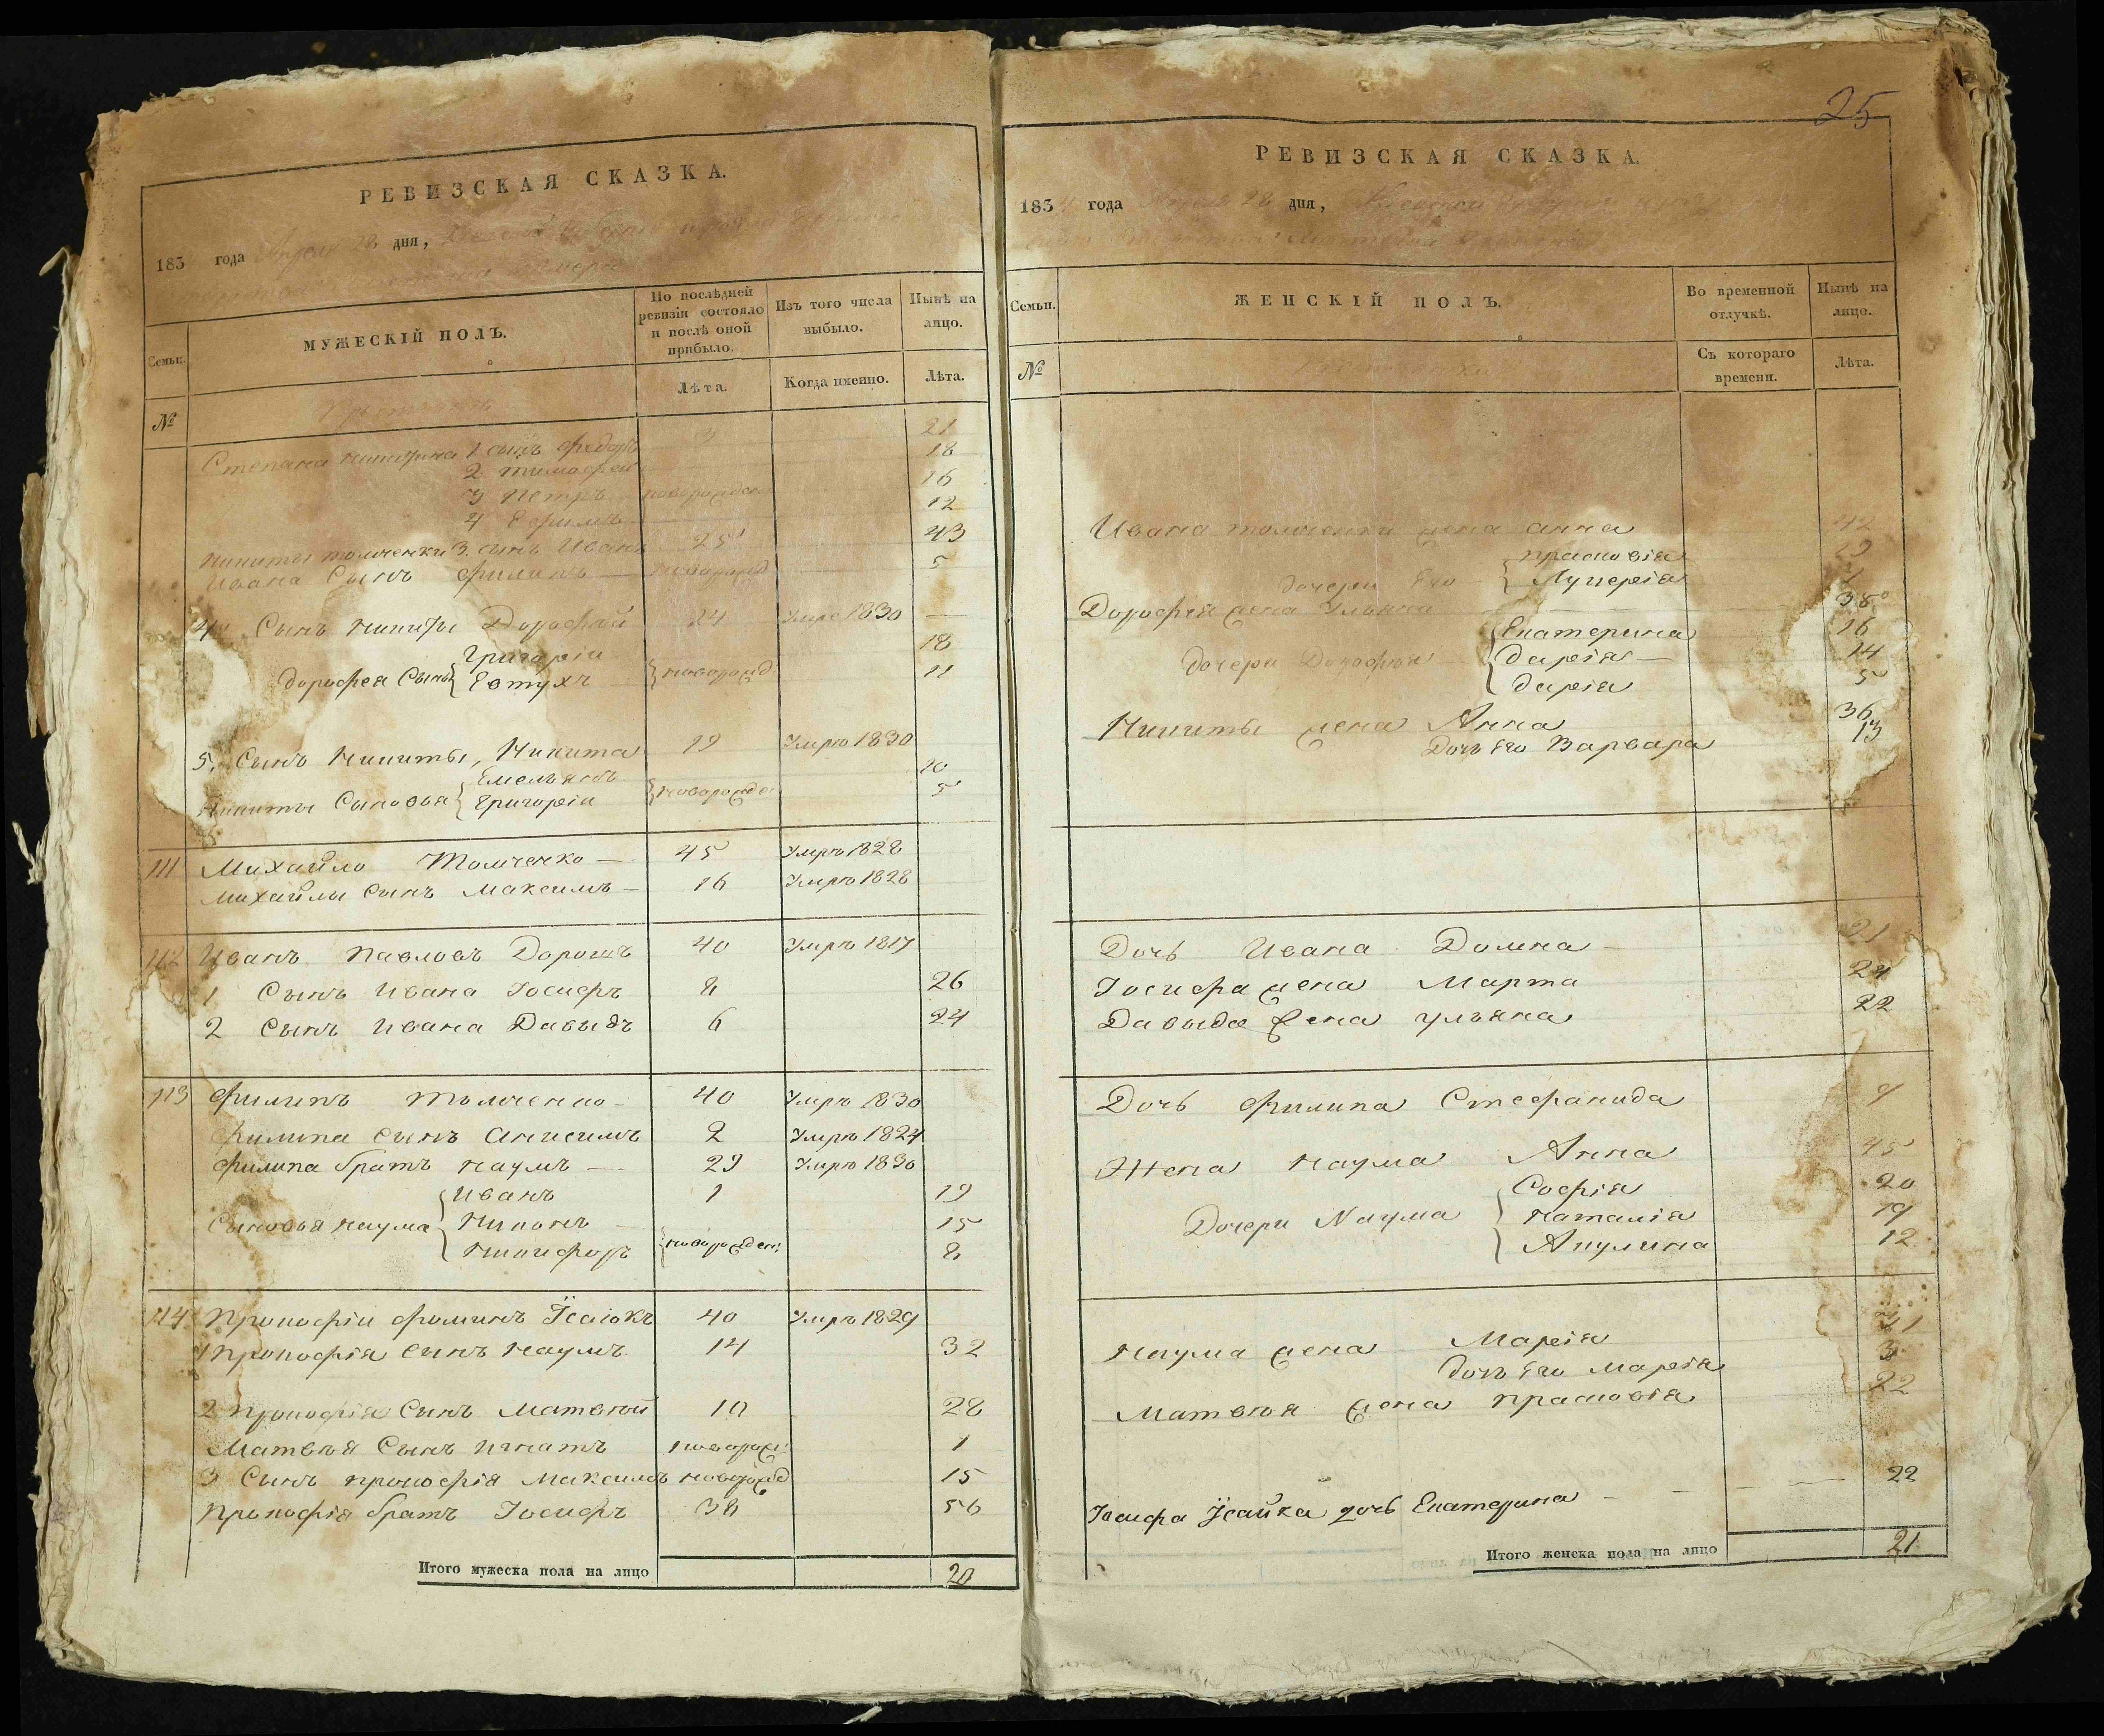 РЕВИЗСКАЯ СКАЗКА.
183 года Апреля 28 дня,
Семьи. МУЖЕСКІЙ ПОЛЪ. По послѣдней ревизіи состояло и послѣ оной прибыло. Изъ того числа выбыло. Нынѣ на лицо.
№ Лѣта. Когда именно. Лѣта.
Степана 1 сынъ Федоръ 3 21
2 Тимофей 18
3 Петръ новорожден 16
4 Ефимъ 12
Никиты Толмченки 3. сынъ Иванъ 25 43
Ивана Сынъ Филипъ — новорожд 5
4й Сынъ Никиты Дорофѣй 24 Умре 1830 —
Григорій 18
Дорофея Сыны Евтухъ новорожд 11
5. Сынъ Никиты, Никита 19 Умрѣ 1830
Емельянъ 10
Никиты Сыновья Григорій новорожде 5
111 Михайло Толмченко — 45 Умръ 1828
Михайлы Сынъ Максимъ — 16 Умрѣ 1828
112 Иванъ Павловъ Дорошъ 40 Умръ 1817
1 Сынъ Ивана Іосифъ 8 26
2 Сынъ Ивана Давыдъ 6 24
113 Филипъ Толмченко — 40 Умрѣ 1830
Филипа Сынъ Анисимъ 2 Умрѣ 1824
Филипа братъ Наумъ — 29 Умрѣ 1830
Иванъ 1 19
Сыновья Наума Никонъ — 15
Никифоръ новорожден: 8
114 Прокофій Фоминъ Усаюкъ 40 Умрѣ 1829
1 Прокофія Сынъ Наумъ 14 32
2 Прокофія Сынъ Матвѣй 10 28
Матвѣя Сынъ Игнатъ новорожд: 1
3 Сынъ Прокофія Максимъ новорожд 15
Прокофія братъ Іосифъ 38 56
Итого мужеска пола на лицо 20
25
РЕВИЗСКАЯ СКАЗКА.
1834 года Апреля 28 дня,
Семьи. ЖЕНСКІЙ ПОЛЪ. Во временной отлучкѣ. Нынѣ на лицо.
№ Съ котораго времени. Лѣта.
Ивана Толмченки жена Анна 42
Прасковія 19
дочери Его Лукерія
Дорофея жена Ульяна 38
Екатерина 16
дочери Дорофѣя Дарія — 14
Дарія 5
Никиты жена Анна 36
Дочь Его Варвара 13
Дочь Ивана Домна — 21
Іосифа жена Марта 24
Давыда жена Ульяна 22
Дочь Филипа Стефанида 9
Жена Наума Анна 45
Софія 20
Дочери Наума Наталія 19
Акулина 12
Наума жена Марія 21
дочь Его Марія 3
Матвѣя жена Прасковія 22
Іосифа Усайка дочь Екатерина — — — — 22
Итого женска пола на лицо 21